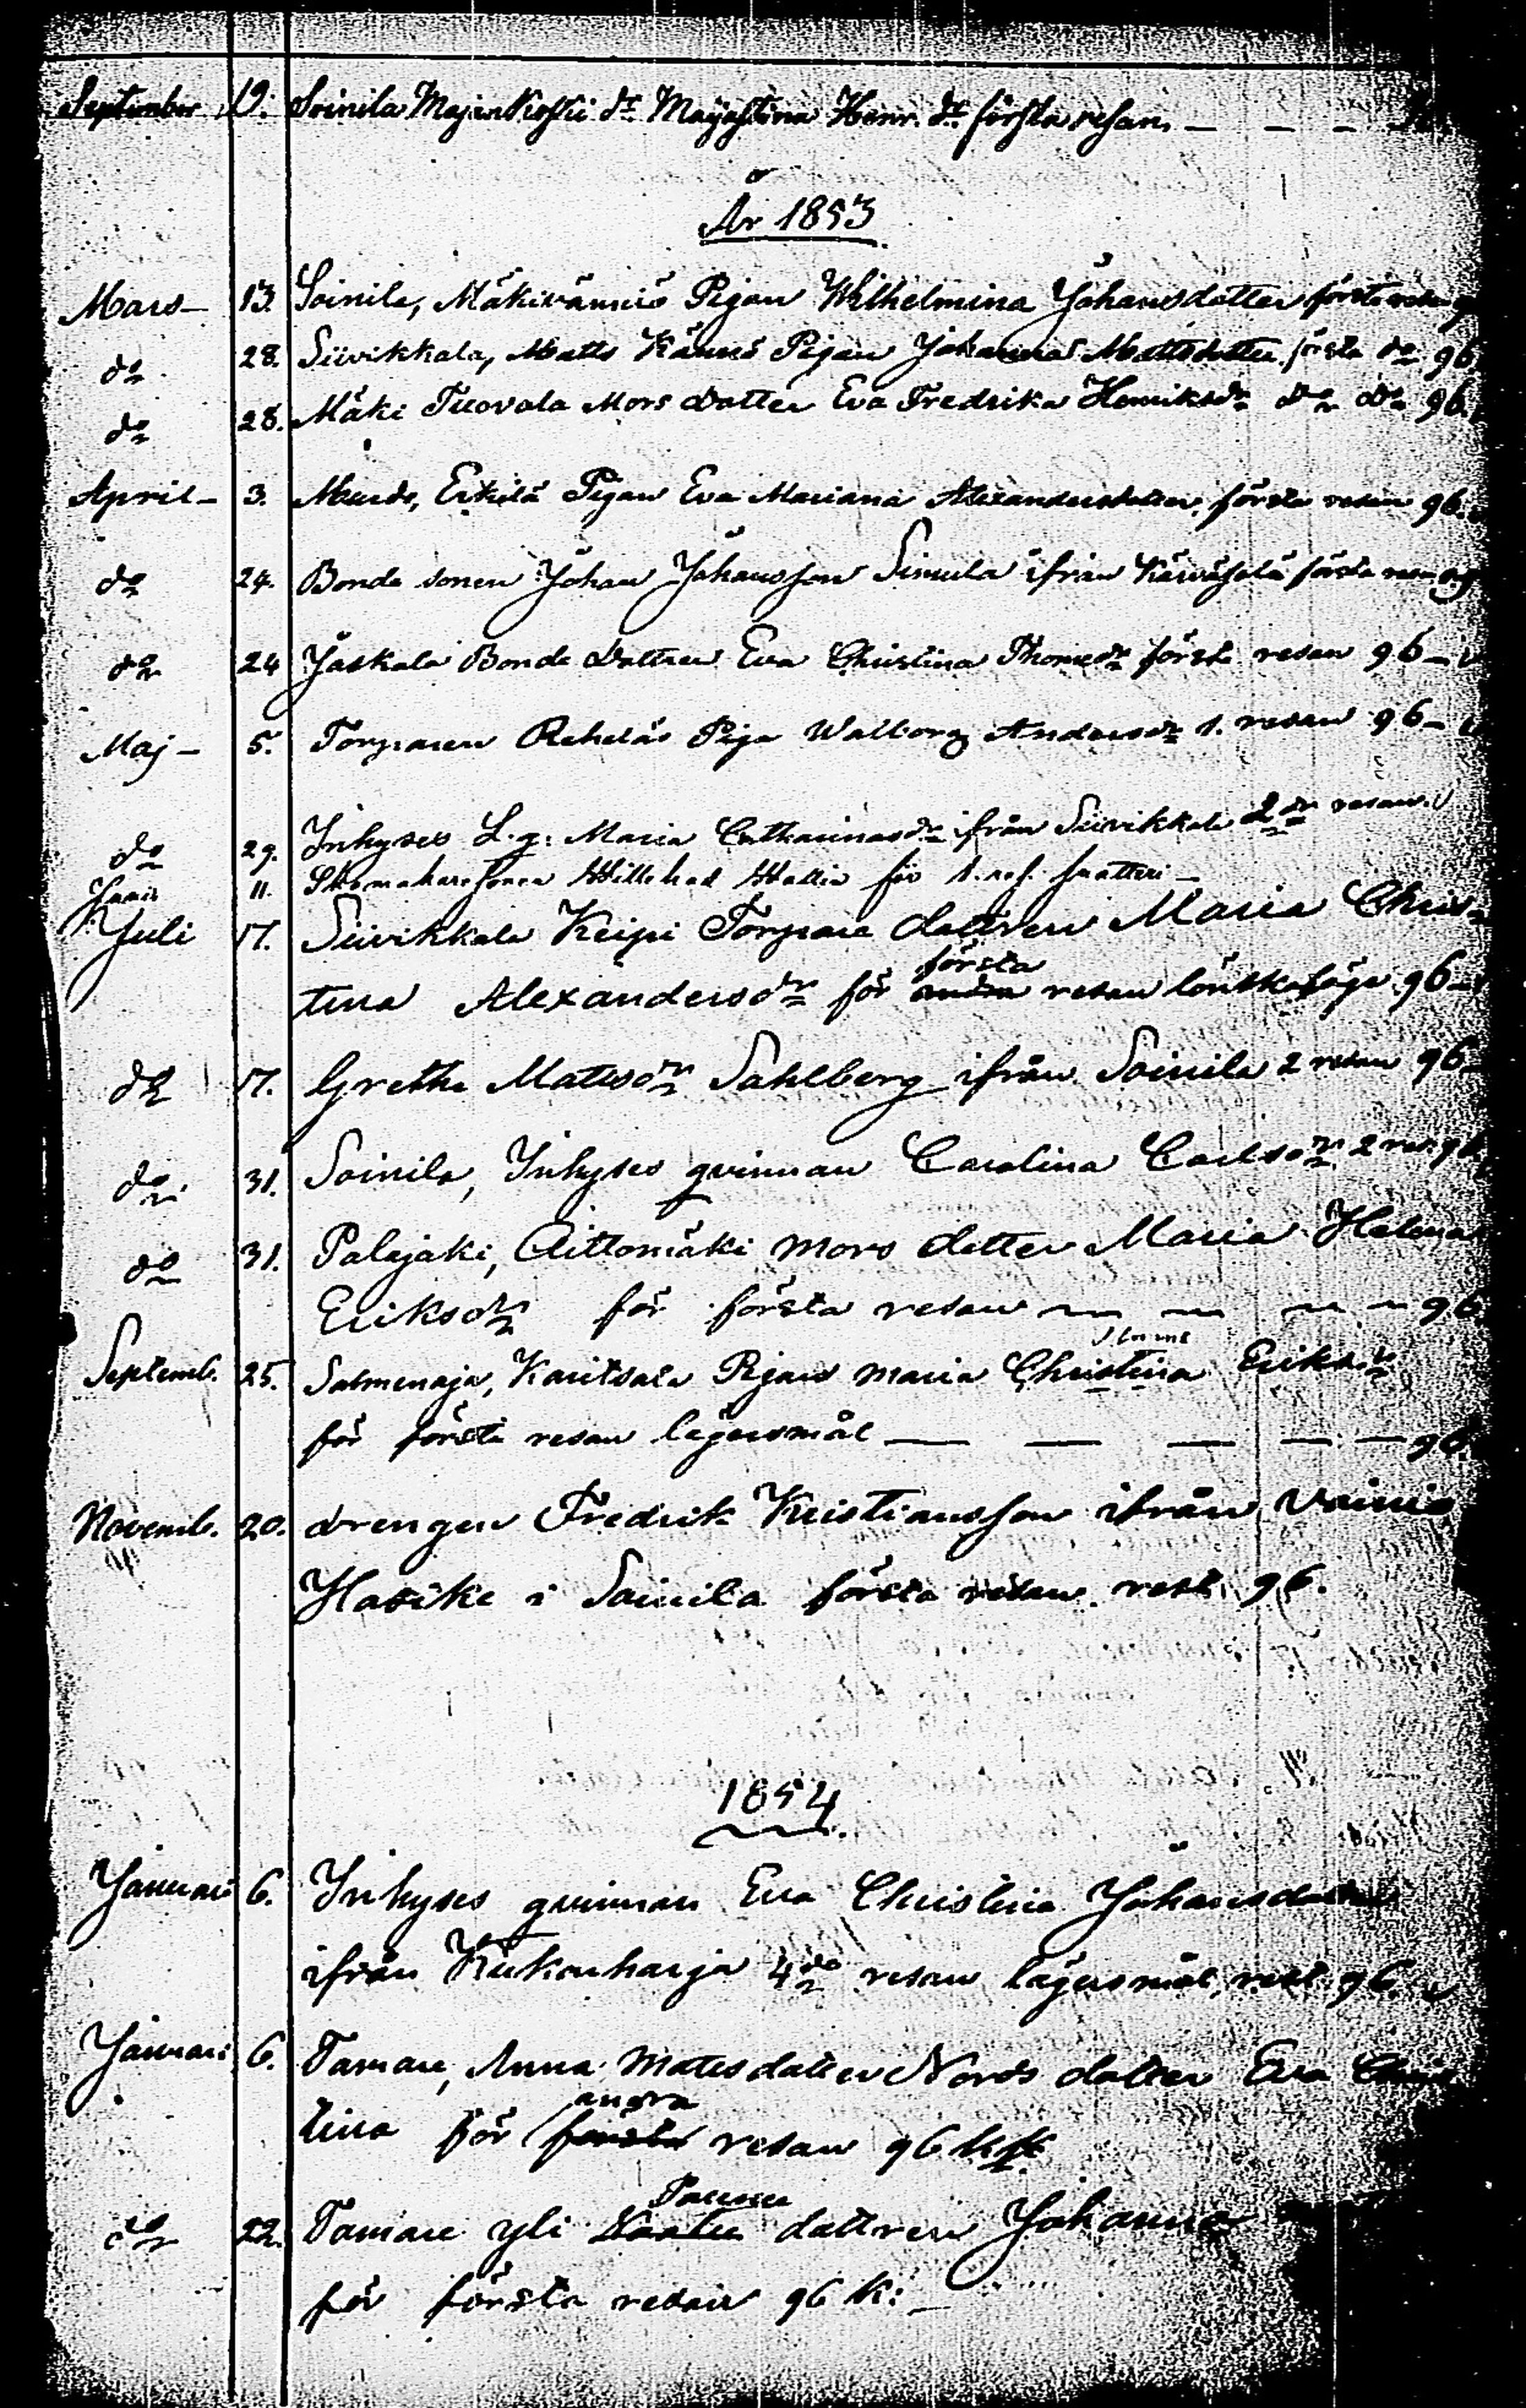 September 19. Soinila Majankoski dr Majastina Henr. dr första resan. — — —
År 1853
Mars — 13. Soinila, Mäkivänniö Pigan Wilhelmina Johansdotter första resan
do 28. Siivikkala, Matts Kännö Pigan Johanna Mattsdotter första do 96.
do 28. Mäki Tuovola Mors dotter Eva Fredrika Henriksdr do do 96.
April — 3. Erkilä Pigan Eva Mariana Alexandersdotter, första resan 96.
do 24. Bonde sonen Johan Johansson Simula ifrån första resan
do 24 Jaskala Bonde Dottren Eva Christina Thomasdr första resan 96 —
Maj — 5. Torparen Rekeläs Piga Walborg Andersdr 1. resan 96 —
do 29. Inhyses L. g: Maria Catharinasdr ifrån Siivikkala 2dra resan.
Junii 11. Skomakaresonen Willehad Wallin för 1. res.
Juli 17. Siivikkala Keipi Torpare dottren Maria Chris-
tina Alexandersdr för första andra resan lönskaläge 96 —
do 17. Gretha Mattsdr Sahlberg ifrån Soinila 2 resan 96 —
do 31. Soinila, Inhyses qvinnan Carolina Carlsdr 2 res. 96
do 31. Palojoki, Aittomäki mors dotter Maria Helena
Eriksdr för första resan — — — — 96.
Septemb. 25. Salmenoja, Karitsala Pigan Maria Christina Eriksdr
för första resan lägersmål — — — — — 96.
Novemb. 20. drengen Fredrik Kristiansson ifrån Vainio
Hasike i Soinila första resan rest. 96.
1854
Januari 6. Inhyses qvinnan Eva Christina Johansdotter
ifrån Kiikonharja 4de resan lägersmål, rest. 96.
Januari 6. Tamare, Anna Mattsdotter Nords dotter Eva Chris
tina för andra första resan 96 Kop.
do 22. Tamare yli dottren Johanna
för första resan 96 K: —